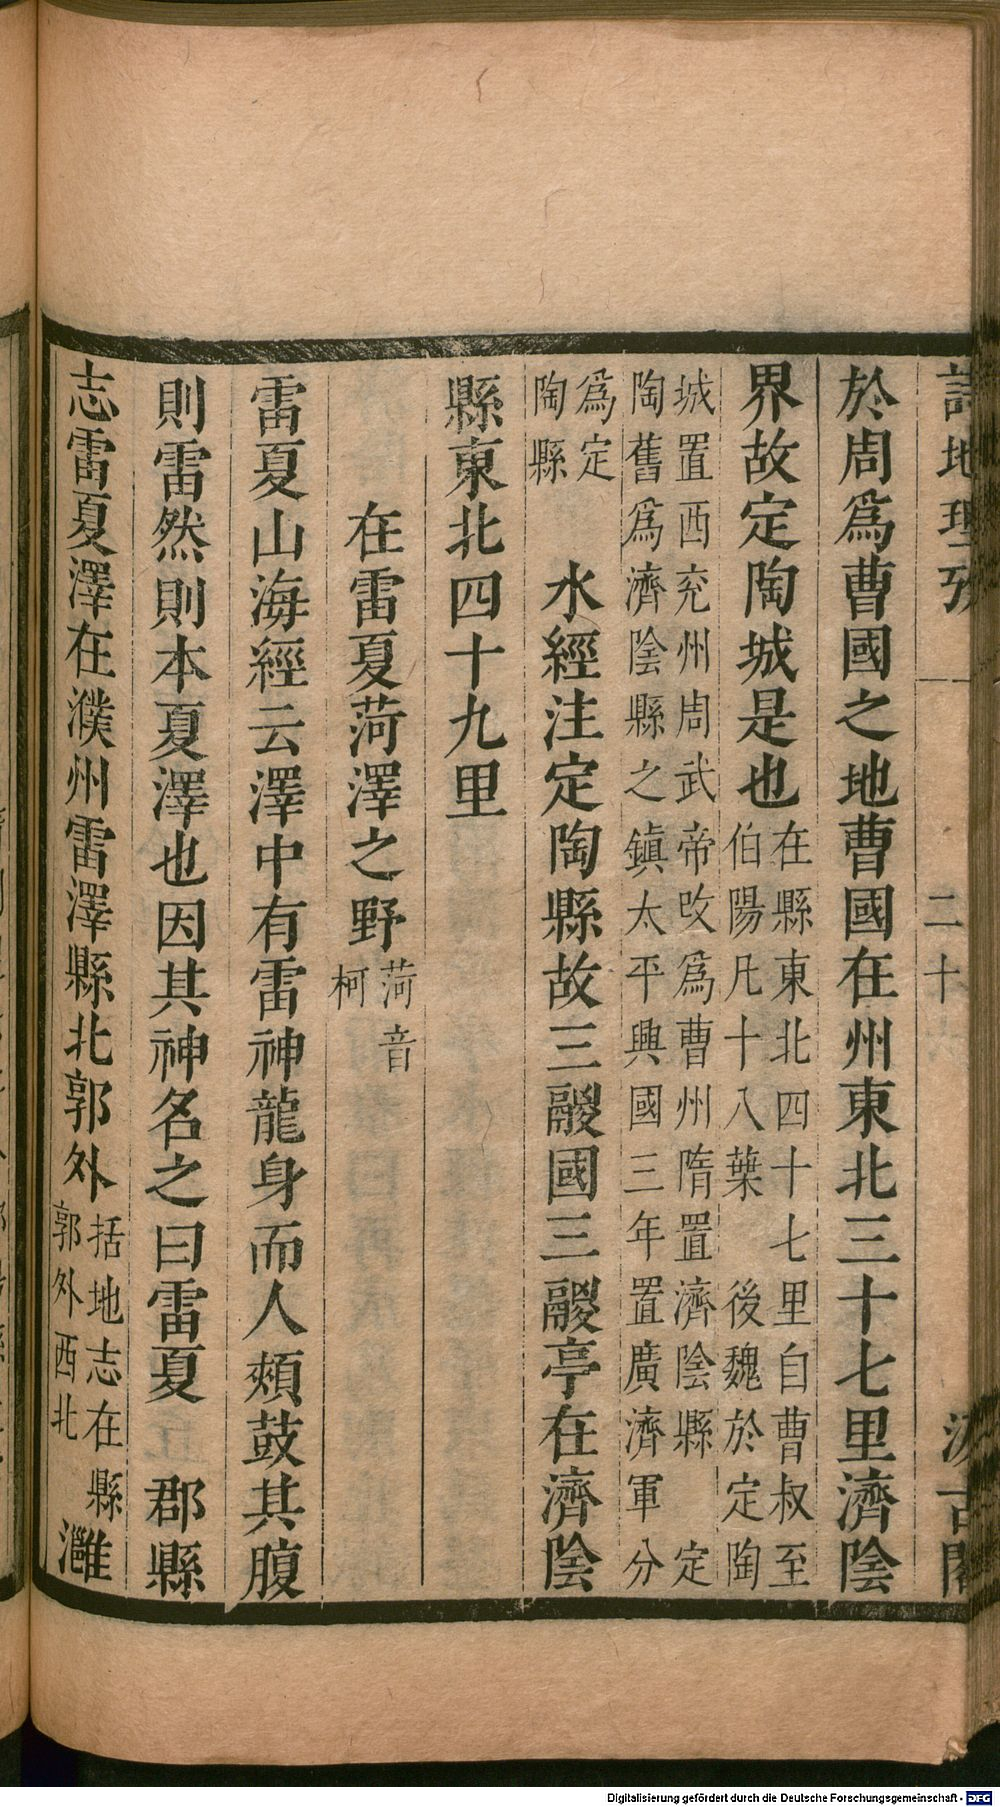 詩地理攷
二十六
汲古閣
於周爲曹國之地曹國在州東北三十七里濟陰
界故定陶城是也
在縣東北四十七里自曹叔至
伯陽凡十八葉　後魏於定陶
城置西兖州周武帝改爲曹州隋置濟陰縣　定
陶舊爲濟陰縣之鎮太平興國三年置廣濟軍分
爲定
陶縣
水經注定陶縣故三鬷國三鬷亭在濟陰
縣東北四十九里
在雷夏菏澤之野
菏音
柯
雷夏山海經云澤中有雷神龍身而人頰鼓其腹
則雷然則本夏澤也因其神名之曰雷夏　郡縣
志雷夏澤在濮州雷澤縣北郭外
括地志在縣
郭外西北
灉
Digitalisierung gefördert durch die Deutsche Forschungsgemeinschaft - DFG